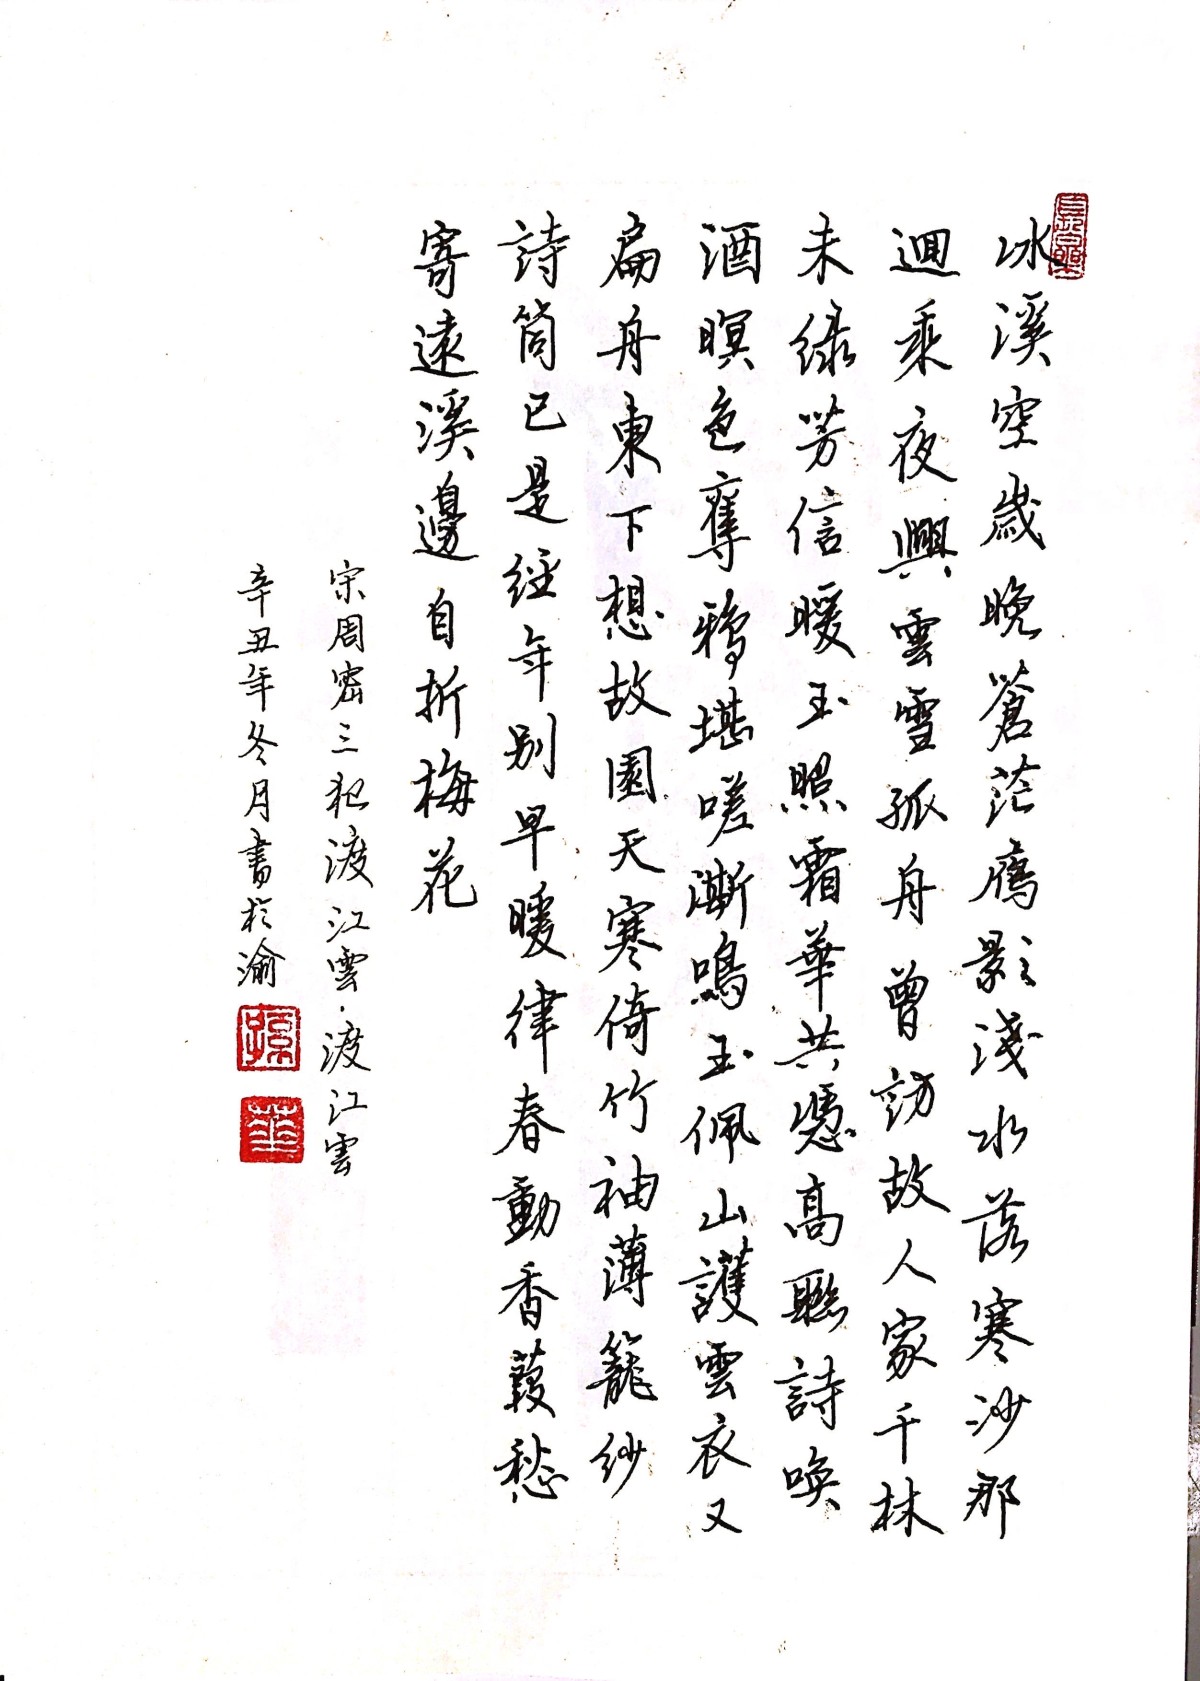 冰溪空歲晚蒼茫鴈影淺水落寒沙那
迴乘夜興雲雪孤舟曾訪故人家千林
未綠芳信暖玉照霜華共憑高聯詩喚
酒暝色奪鴉堪嗟漸鳴玉佩山護雲衣又
扁舟東下想故園天寒倚竹袖薄籠紗
詩筒已是經年別早暖律春動香葭愁
寄遠溪邊自折梅花
宋周密三犯渡江雲·渡江雲
辛丑年冬月書於渝
孫
華